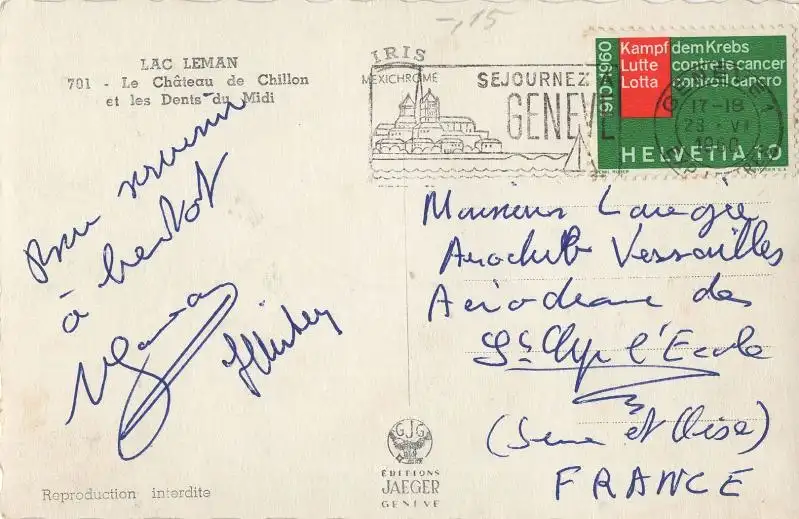 -,15
LAC LEMAN
701 - Le Château de Chillon
et les Dents du Midi
IRIS
MEXICHROME
SEJOURNEZ A
GENEVE
1910-1960
Kampf dem Krebs
Lutte contre le cancer
Lotta contro il cancro
17-18
1960
HELVETIA 10
souvenir
à bientôt
Monsieur
Aéroclub Versailles
Aérodrome de
St Cyr l'Ecole
(Seine et Oise)
FRANCE
GJG
ÉDITIONS
JAEGER
GENÈVE
Reproduction interdite